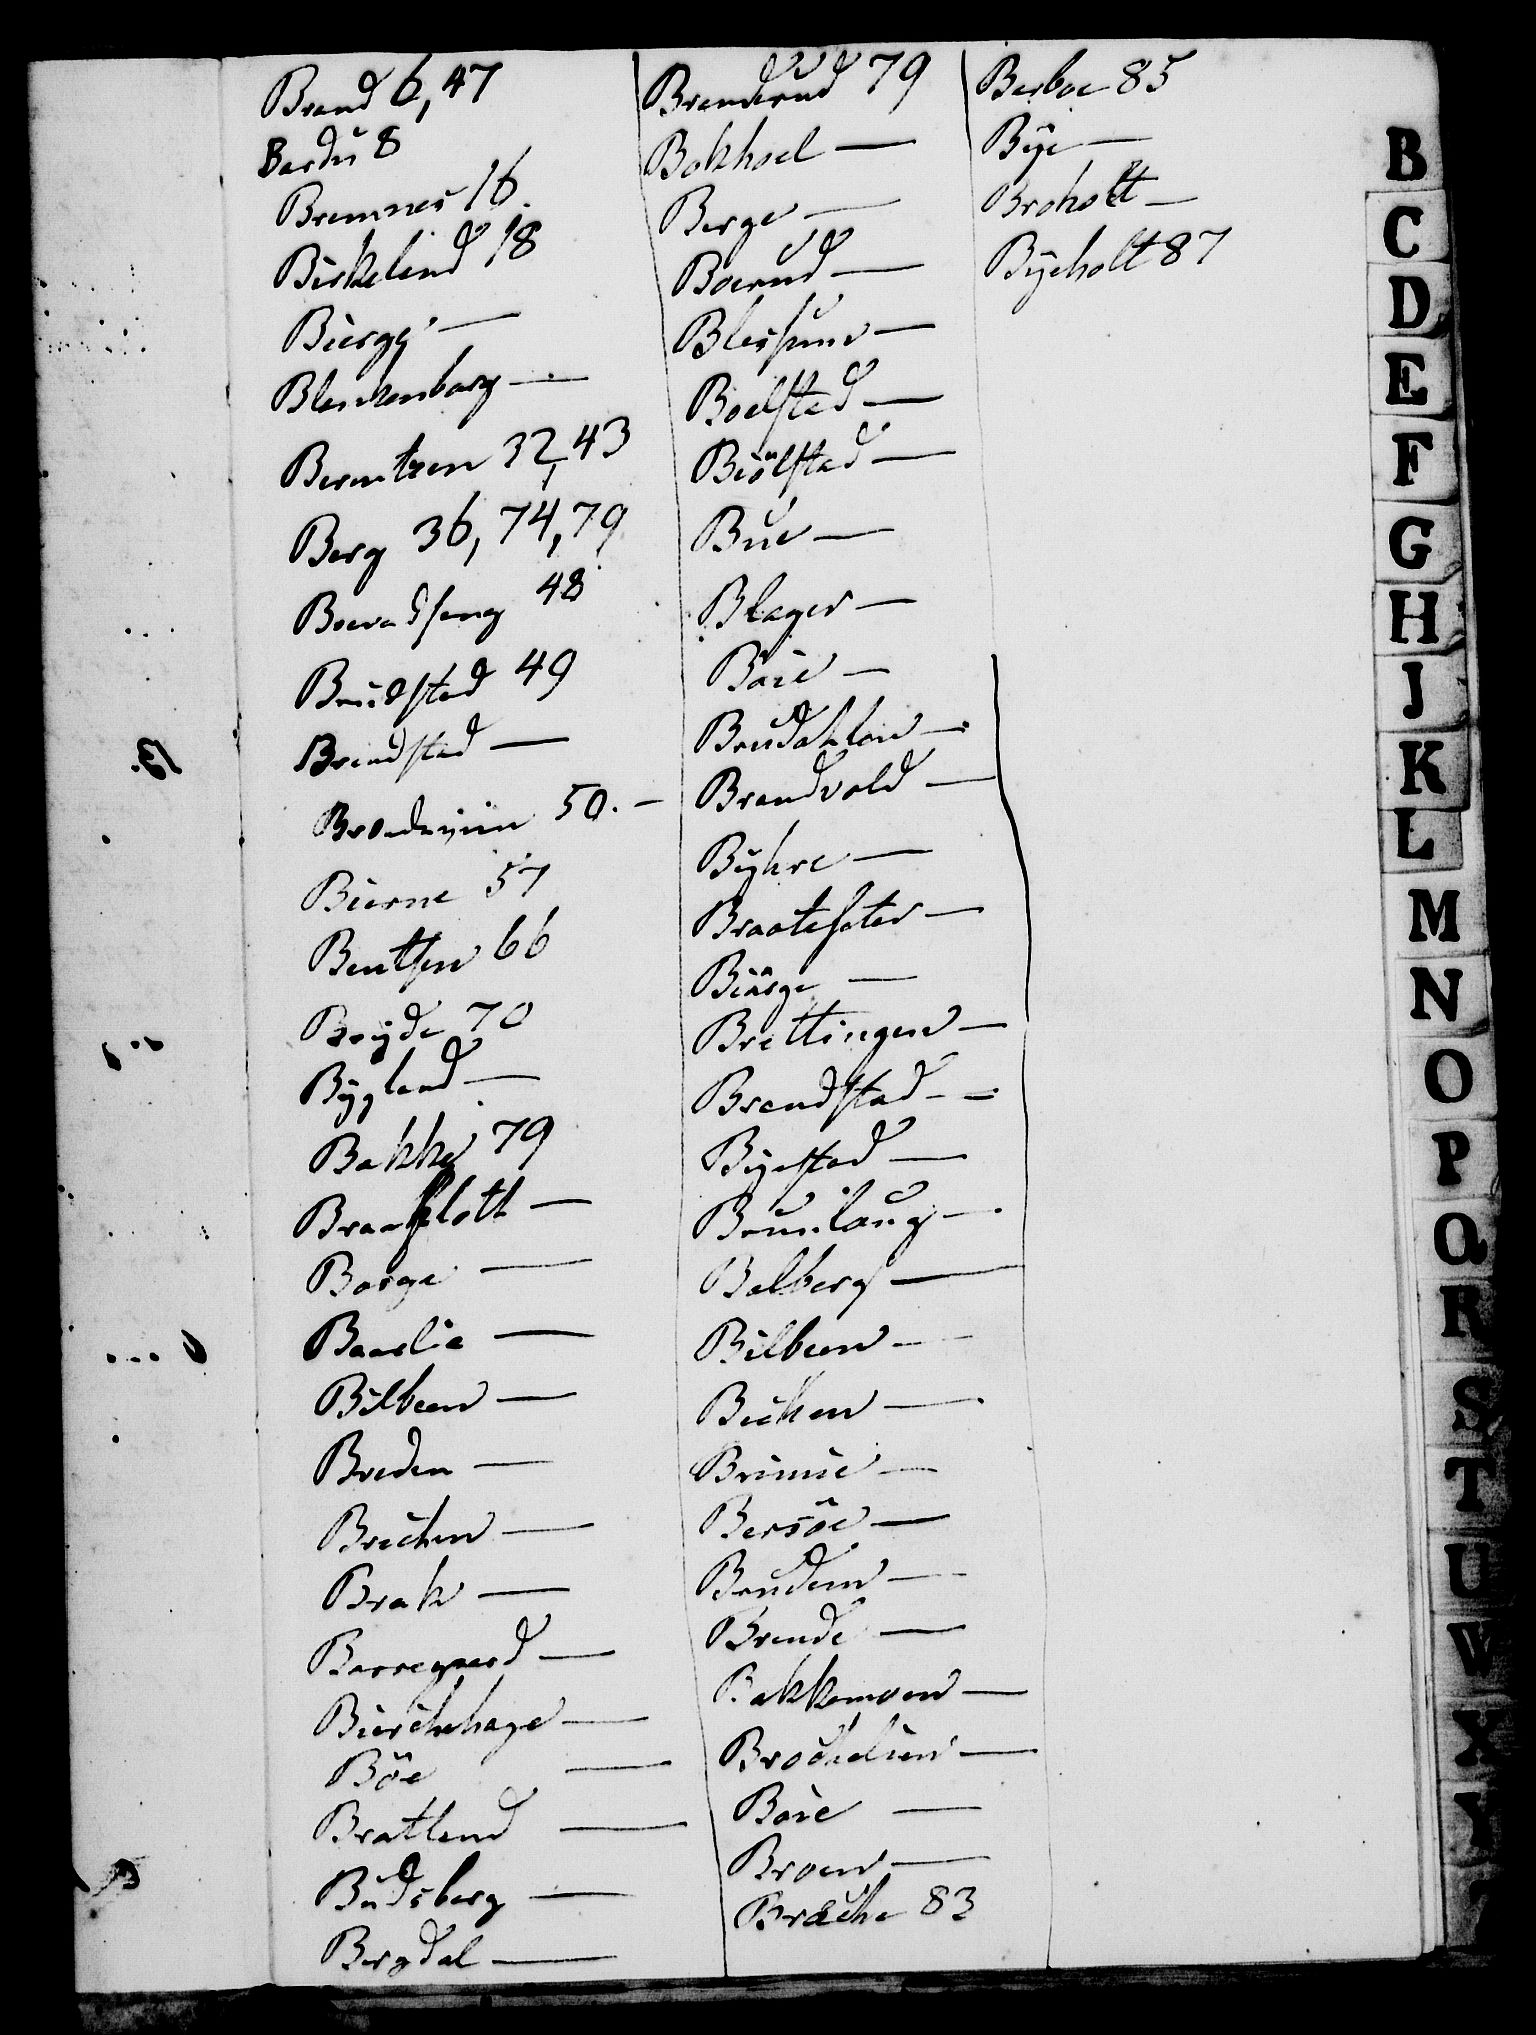 Brand 6, 47
Bardu 8
Bremnes 16
Birkeland 18
Biergg —
Blankenborg —
Berentzen 32, 43
Berg 36, 74, 79
Brudstad 49
Brandstad —
50. —
Bierne 57
Bentsen 66
Bryde 70
Bygland —
Bakke 79
Braatsloth —
Borge —
Baaslie —
Bilbeen —
Breden —
Brichen —
Brak —
Borregaard —
Bierchehage —
Böe —
Bratland —
Budsberg —
Bergdal —
Branderud 79
Bakhoel —
Berge —
Boerud —
Boelstad —
Biölstad —
Bue —
Blager —
Boie —
Brudahlen —
Brandvold —
Byhre —
Braateseter —
Biärge —
Brettingen —
Brandstad —
Byestad —
Brunlaug —
Balberg —
Bilbeen —
Bichen —
Brimie —
Bersöe —
Bruden —
Brende —
Bakkemoen —
Brochelien —
Boie —
Broen —
Bräche 83
Berboe 85
Bye —
Broholt —
Byeholt 87
B
C
D
E
F
G
H
J
K
L
M
N
O
P
Q
R
S
T
U
W
X
Y